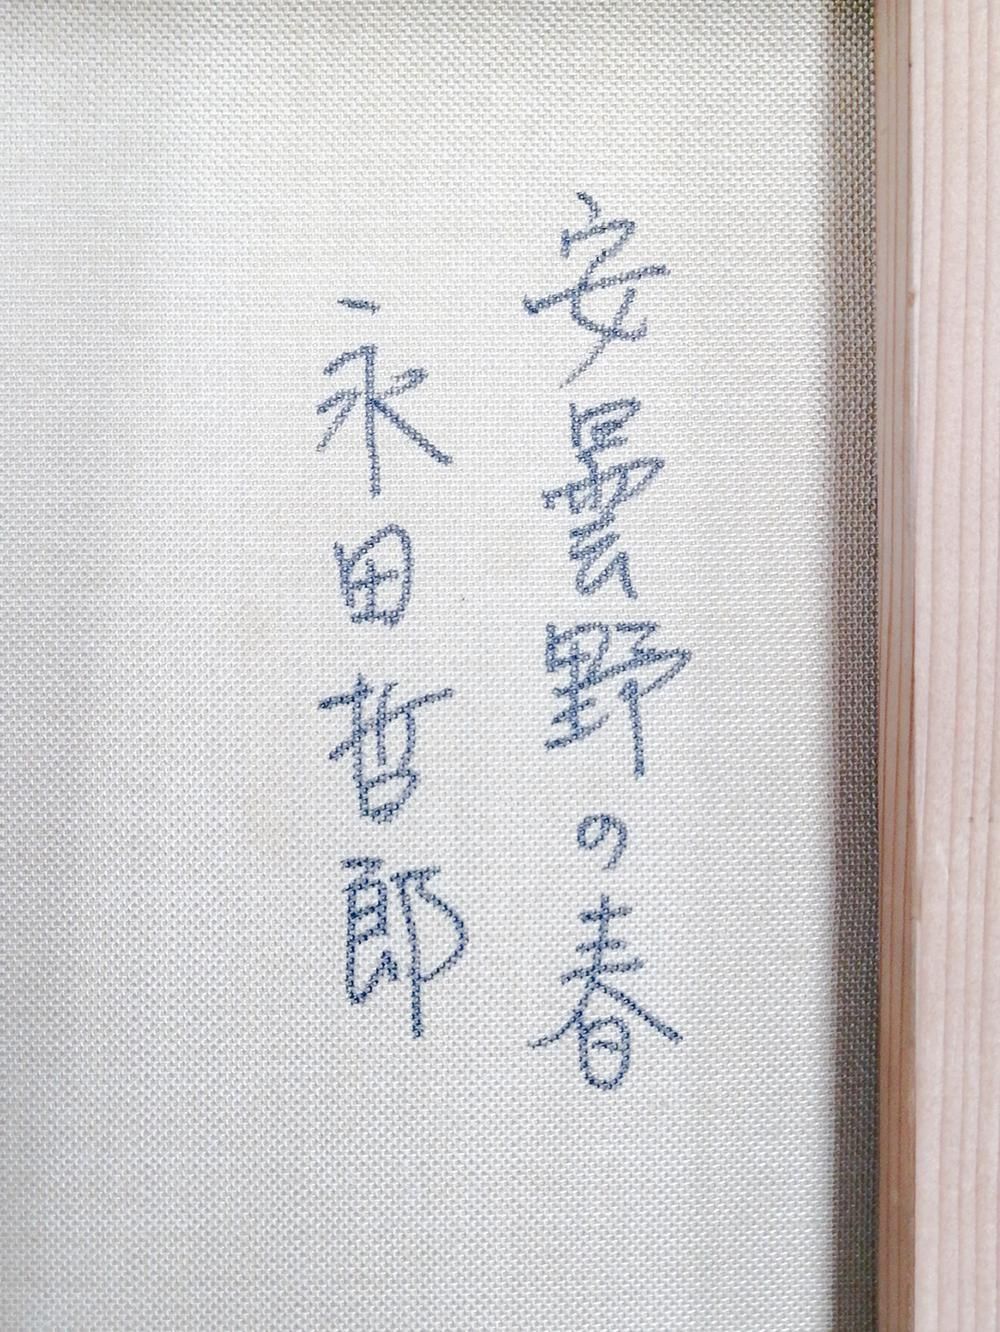 安曇野の春
永田哲郎